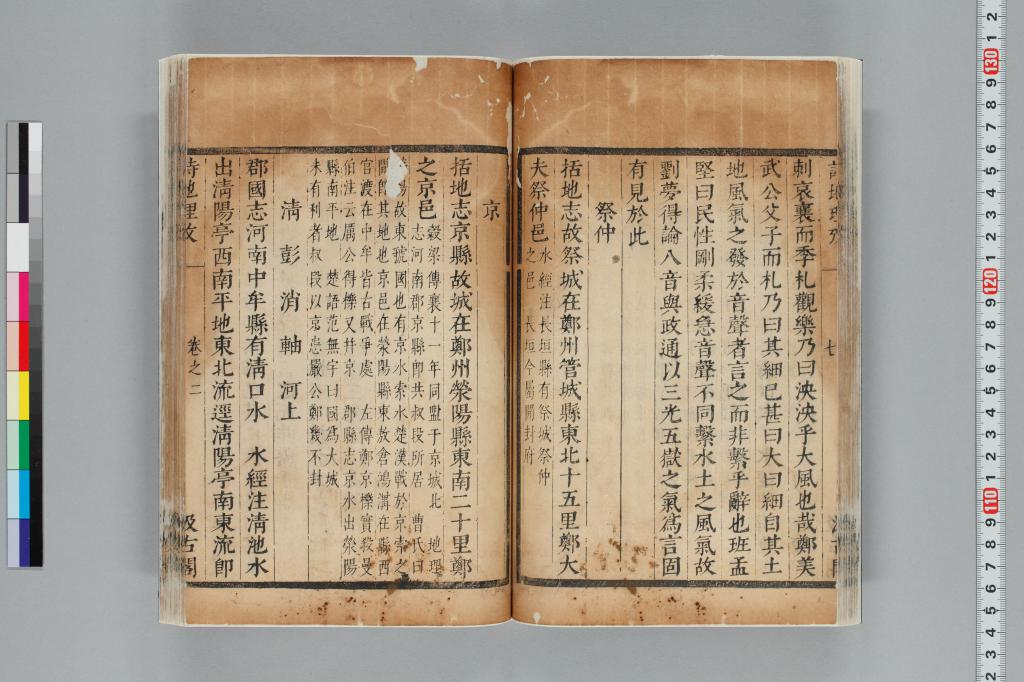 刺哀襄而季札觀樂乃曰泱泱乎大風也哉鄭美
武公父子而札乃曰其細已甚曰大曰細自其土
地風氣之發於音聲者言之而非繫乎辭也班孟
堅曰民性剛柔緩急音聲不同繫水土之風氣故
劉夢得論八音與政通以三光五嶽之氣爲言固
有見於此
祭仲
括地志故祭城在鄭州管城縣東北十五里鄭大
夫祭仲邑
水經注長垣縣有祭城祭仲
之邑 長垣今屬開封府
京
括地志京縣故城在鄭州滎陽縣東南二十里鄭
之京邑
穀梁傳襄十一年同盟于京城北 地理
志河南郡京縣卽共叔段所居 曹氏曰
陽故東虢國也有京水索水楚漢戰於京索之
閒卽其地也京邑在滎陽縣東敖倉鴻溝在縣西
官渡在中牟皆古戰爭處 左傳鄭京櫟實殺曼
伯注云厲公得櫟又并京 郡縣志京水出滎陽
縣南平地 楚語范無宇曰國爲大城
未有利者叔段以京患嚴公鄭幾不封
淸 彭 消 軸 河上
郡國志河南中牟縣有淸口水 水經注淸池水
出淸陽亭西南平地東北流逕淸陽亭南東流卽
詩地理攷 卷之二 汲古閣